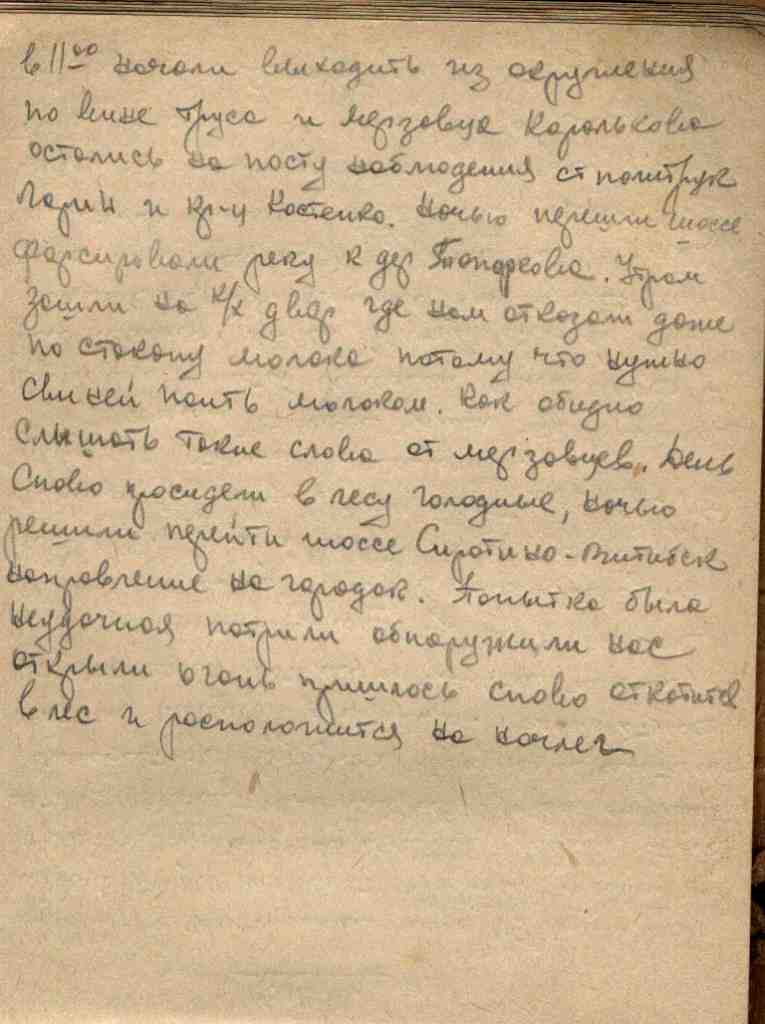 в 11⁰⁰ начали выходить из окружения
по вине труса и мерзовца Королькова
остались на посту наблюдения ст политрук
Ларин и кр-ц Костенко. Ночью перешли шоссе
форсировали реку к дер Топорково. Утром
зашли на к/х двор где нам отказали даже
по стакану молока потому что нужно
свиней поить молоком. Как обидно
слышать такие слова от мерзовцев. День
снова просидели в лесу голодные, ночью
решили перейти шоссе Сиротино-Витибск
направление на городок. Попытка была
неудачная потрули обнаружили нас
открыли огонь пришлось снова откатится
в лес и расположится на ночлег